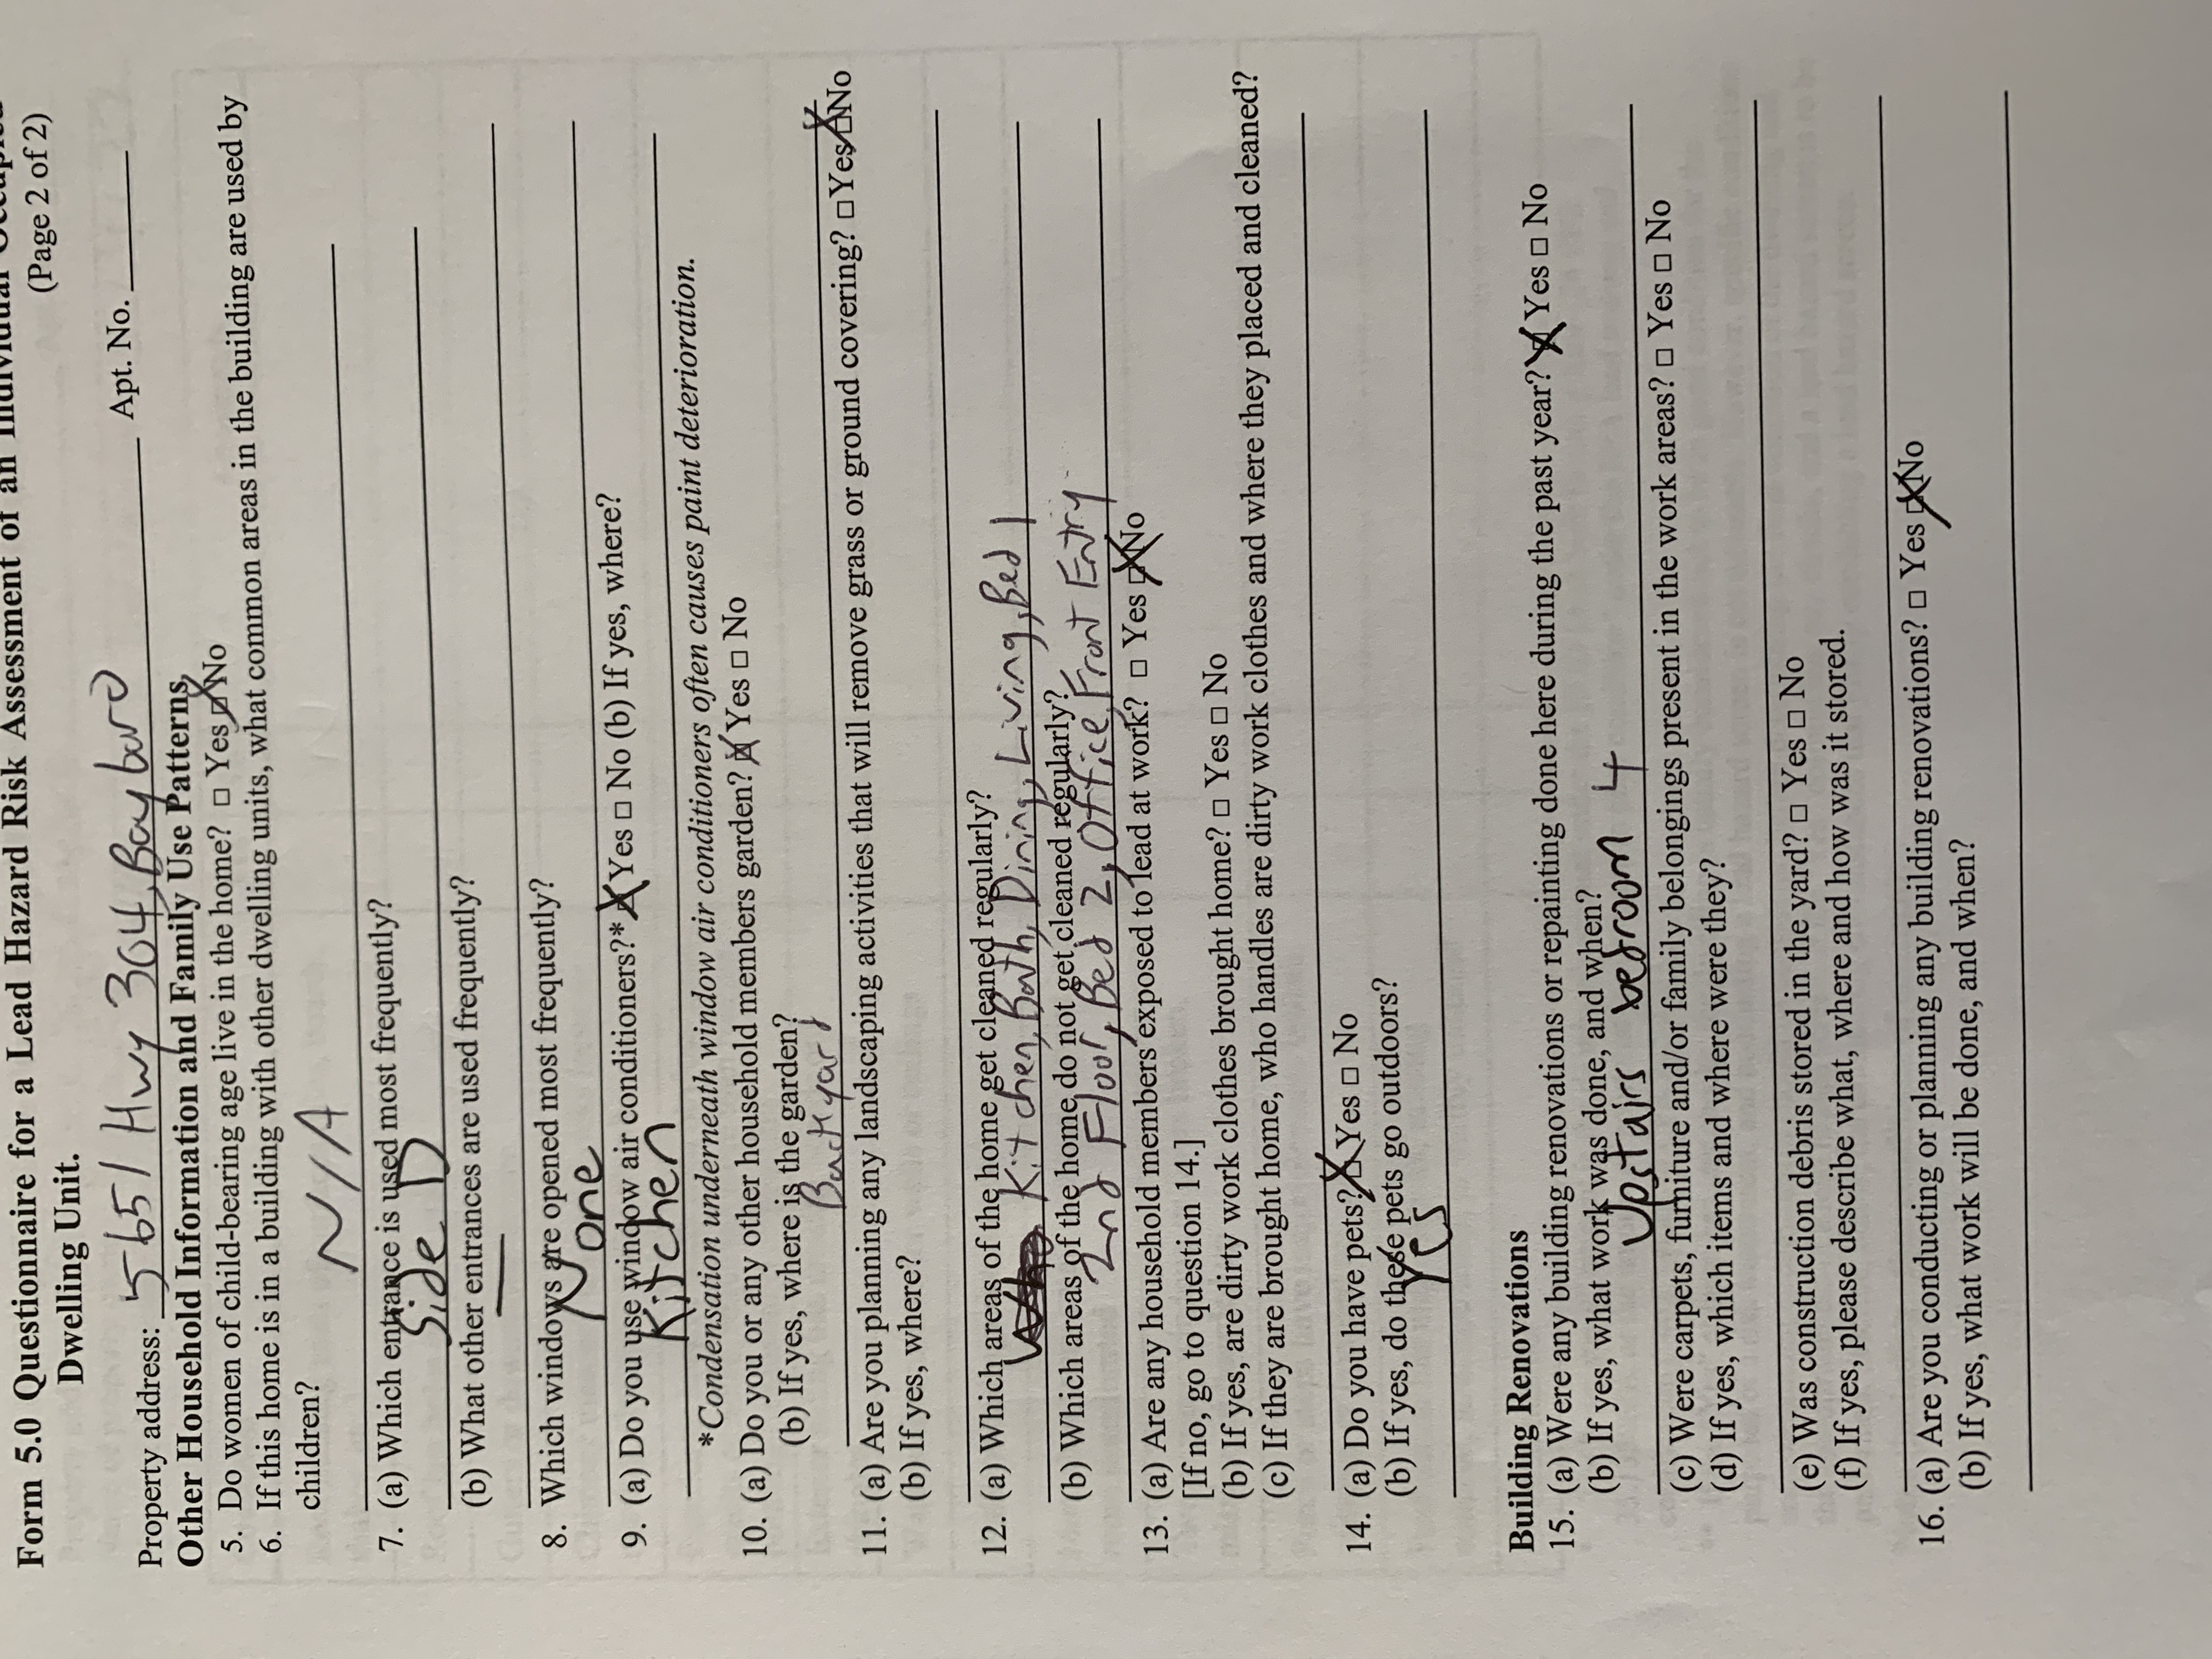 Form 5.0 Questionnaire for a Lead Hazard Risk Assessment of an Individual Occupied
(Page 2 of 2)
Dwelling Unit.
Property address: 5651 Hwy 304, Bayboro Apt. No.
Other Household Information and Family Use Patterns
5. Do women of child-bearing age live in the home? □ Yes ☒ No
6. If this home is in a building with other dwelling units, what common areas in the building are used by
children?
N/A
7. (a) Which entrance is used most frequently?
Side D
(b) What other entrances are used frequently?
—
8. Which windows are opened most frequently?
None
9. (a) Do you use window air conditioners?* ☒ Yes □ No (b) If yes, where?
Kitchen
*Condensation underneath window air conditioners often causes paint deterioration.
10. (a) Do you or any other household members garden? ☒ Yes □ No
(b) If yes, where is the garden?
Backyard
11. (a) Are you planning any landscaping activities that will remove grass or ground covering? □ Yes ☒ No
(b) If yes, where?
12. (a) Which areas of the home get cleaned regularly?
Kitchen, Bath, Dining, Living, Bed 1
(b) Which areas of the home do not get cleaned regularly?
2nd Floor, Bed 2, Office, Front Entry
13. (a) Are any household members exposed to lead at work? □ Yes ☒ No
[If no, go to question 14.]
(b) If yes, are dirty work clothes brought home? □ Yes □ No
(c) If they are brought home, who handles are dirty work clothes and where they placed and cleaned?
14. (a) Do you have pets? ☒ Yes □ No
(b) If yes, do these pets go outdoors?
Yes
Building Renovations
15. (a) Were any building renovations or repainting done here during the past year? ☒ Yes □ No
(b) If yes, what work was done, and when?
Upstairs bedroom 4
(c) Were carpets, furniture and/or family belongings present in the work areas? □ Yes □ No
(d) If yes, which items and where were they?
(e) Was construction debris stored in the yard? □ Yes □ No
(f) If yes, please describe what, where and how was it stored.
16. (a) Are you conducting or planning any building renovations? □ Yes ☒ No
(b) If yes, what work will be done, and when?